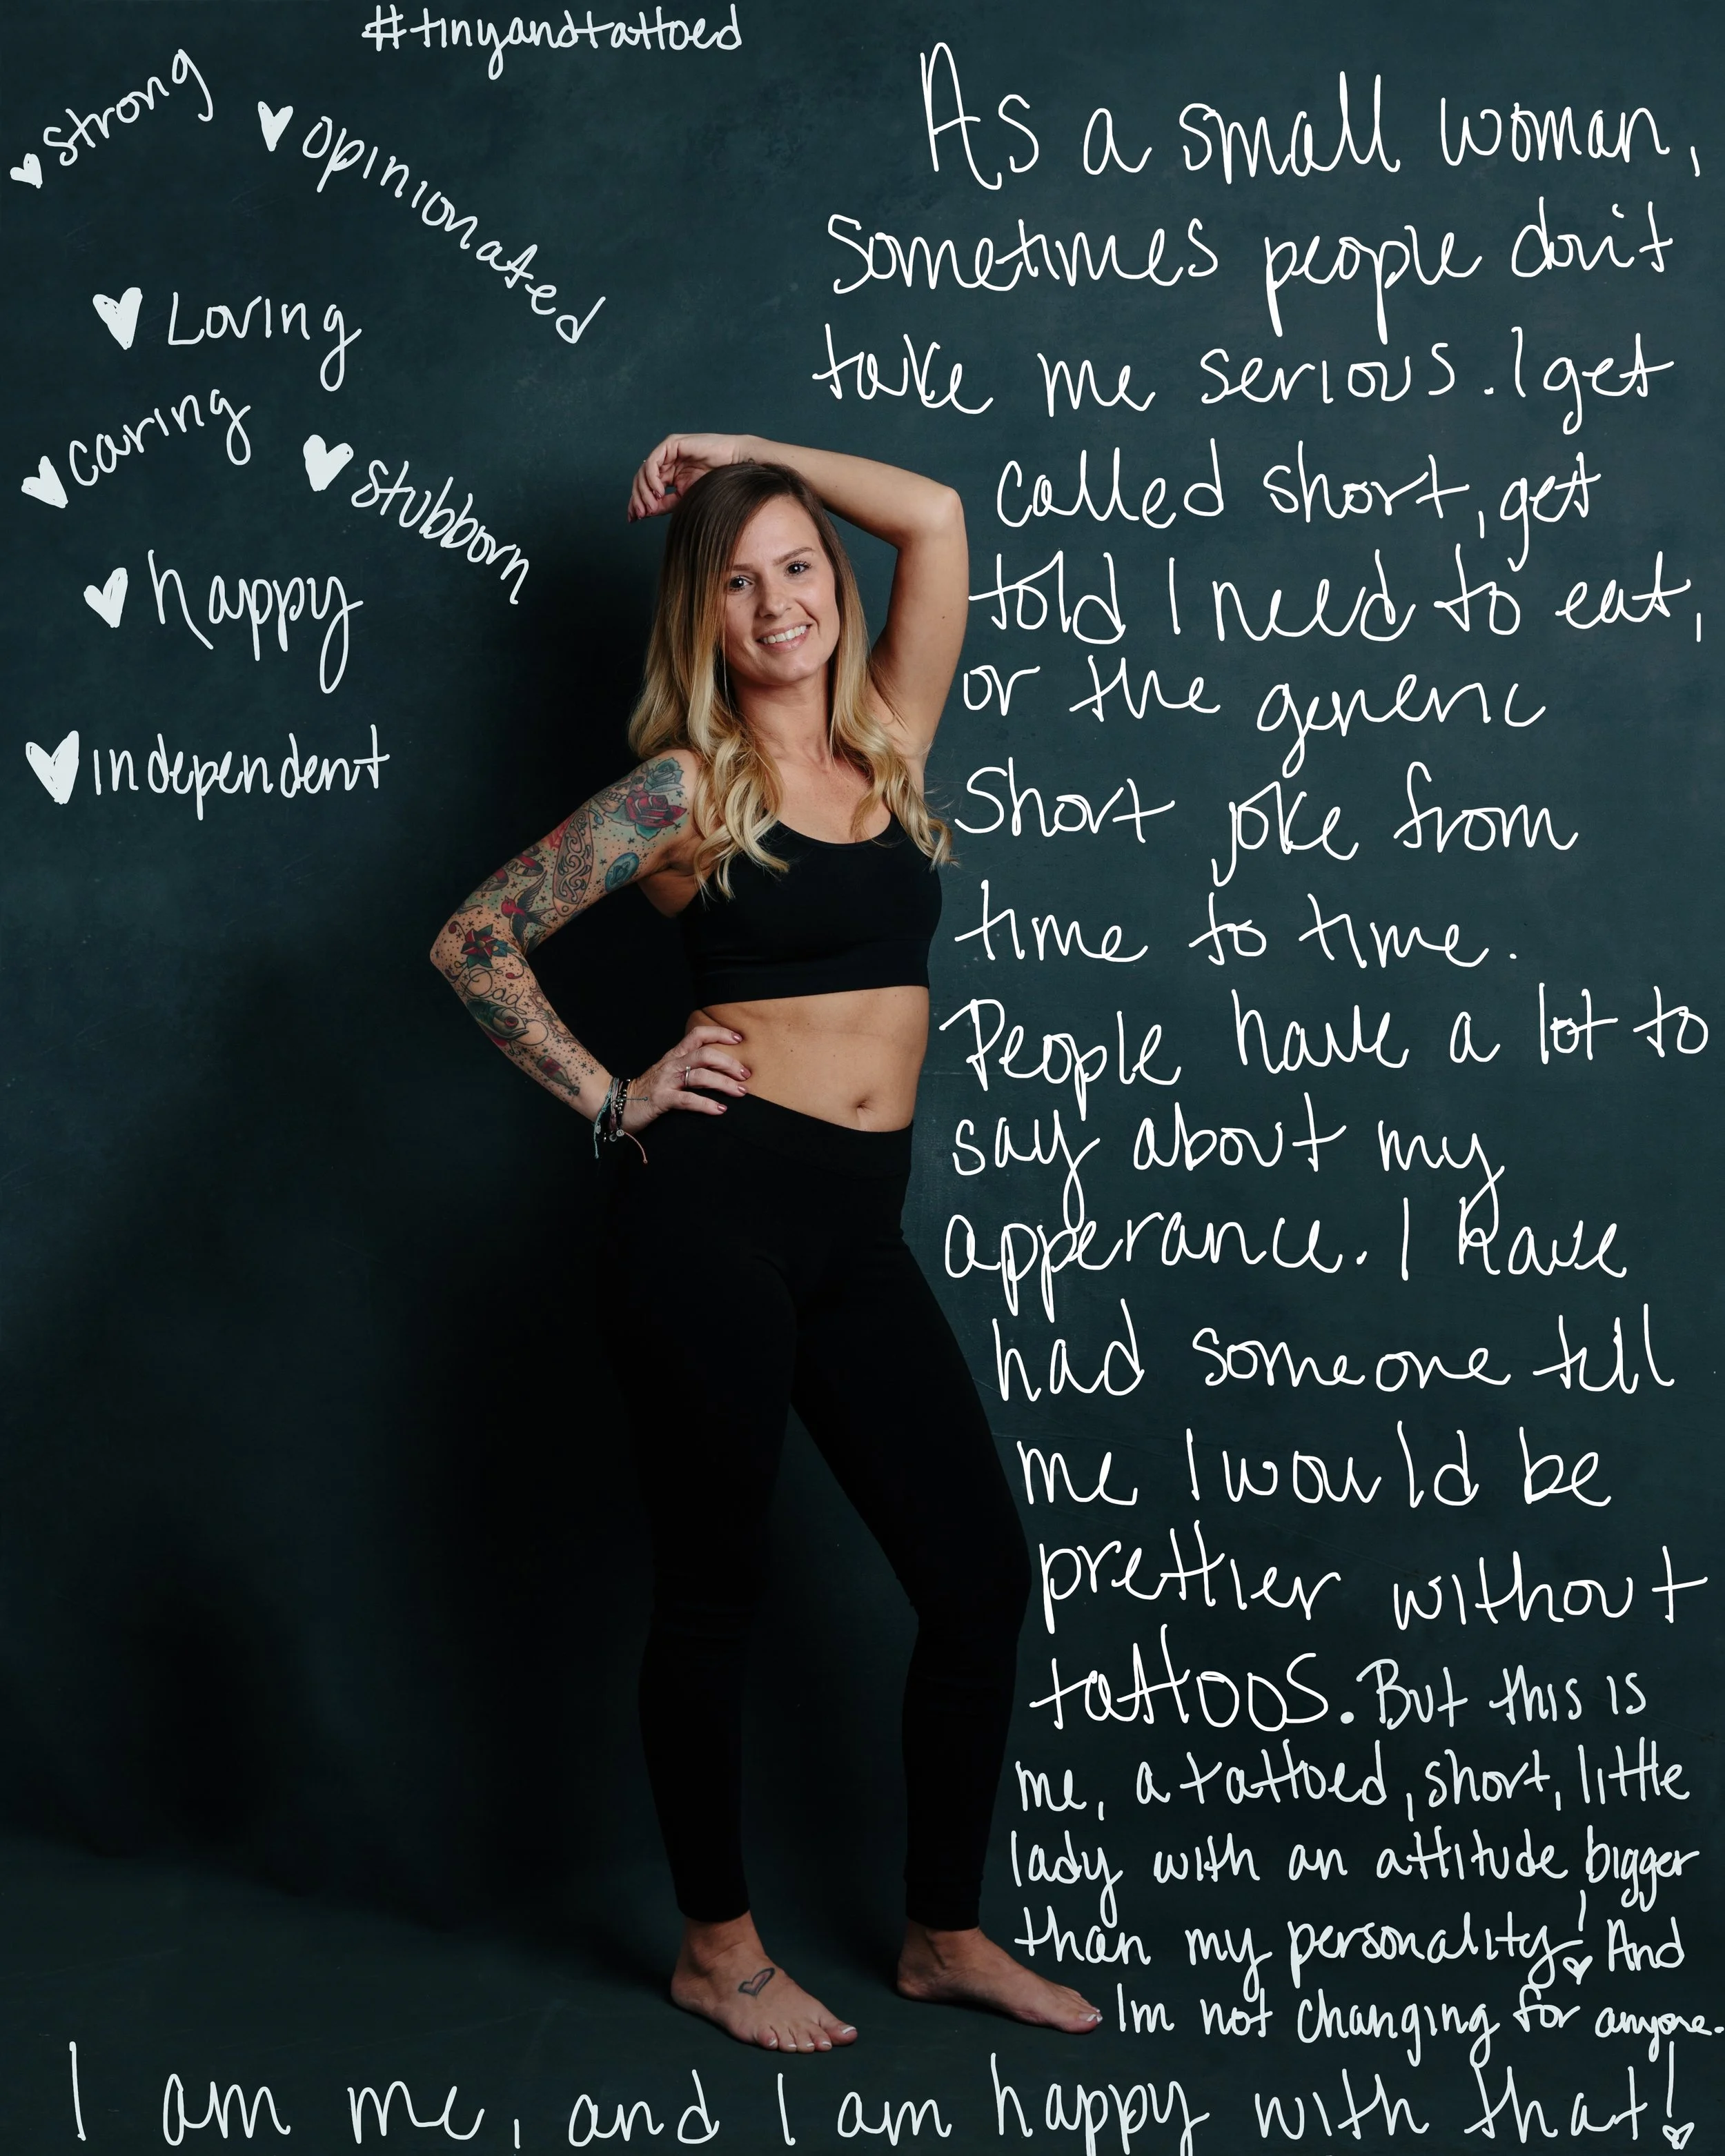 #tinyandtattoed
strong
opinionated
Loving
caring
stubborn
happy
independent
As a small woman,
sometimes people don't
take me serious. I get
called short, get
told I need to eat,
or the generic
short joke from
time to time.
People have a lot to
say about my
apperance. I have
had someone tell
me I would be
prettier without
tattoos. But this is
me, a tattoed, short, little
lady with an attitude bigger
than my personality! And
Im not changing for anyone.
I am me, and I am happy with that!